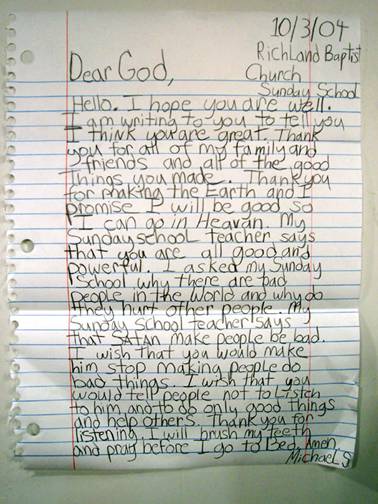 10/3/04
Richland Baptist
Church
Sunday School
Dear God,
Hello. I hope you are well.
I am writing to you to tell you
I think you are great. Thank
you for all of my family and
friends and all of the good
things you made. Thank you
for making the Earth and I
promise I will be good so
I can go in Heavan. My
Sunday school teacher says
that you are all good and
powerful. I asked my Sunday
School why there are bad
people in the world and why do
they hurt other people. My
Sunday School teacher says
that SATAN make people be bad.
I wish that you would make
him stop making people do
bad things. I wish that you
would tell people not to listen
to him and to do only good things
and help others. Thank you for
listening. I will brush my teeth
and pray before I go to Bed. Amen
Michael S